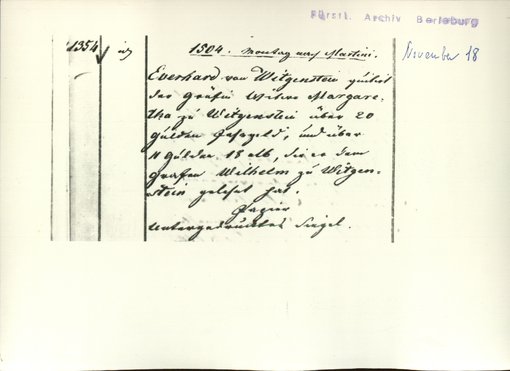 Fürstl. Archiv Berleburg
1354
1504. Montag nach Martini.
November 18
Everhard von Witgenstein quitiert
der Gräfin Witwe Margare-
tha zu Witgenstein über 20
Gulden Hofgeld, und über
11 Gulden 18 alb, die er dem
Grafen Wilhelm zu Witgen-
stein geliehen hat.
Papier
untergedrücktes Siegel.